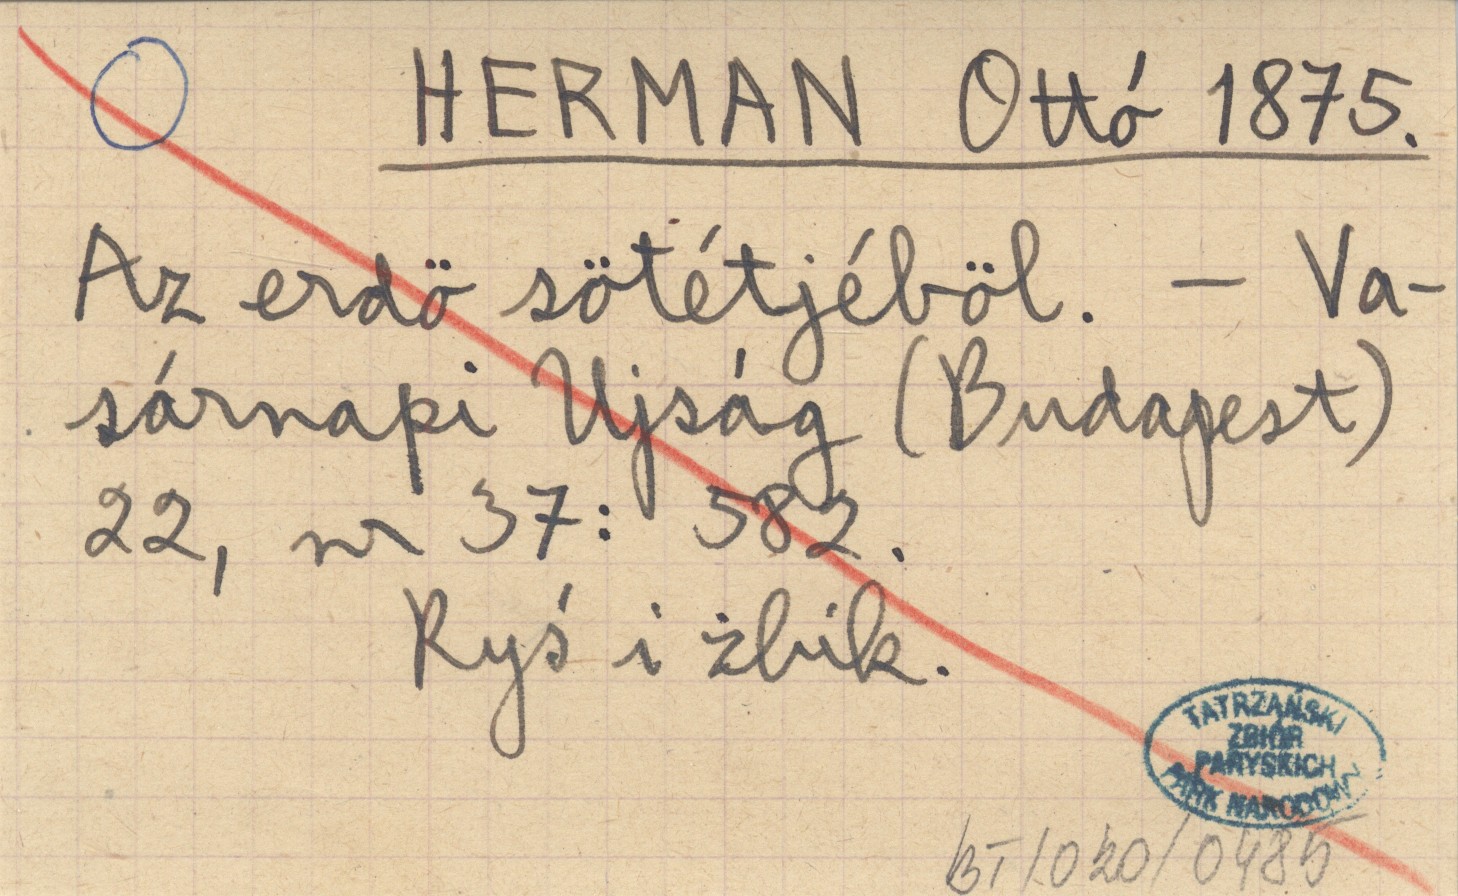 HERMAN Ottó 1875.
Az erdö sötétjéböl. — Va-
sárnapi Ujság (Budapest)
22, nr 37: 582.
Ryś i żbik.
TATRZAŃSKI
ZBIÓR
PARYSKICH
PARK NARODOWY
BT/020/0485